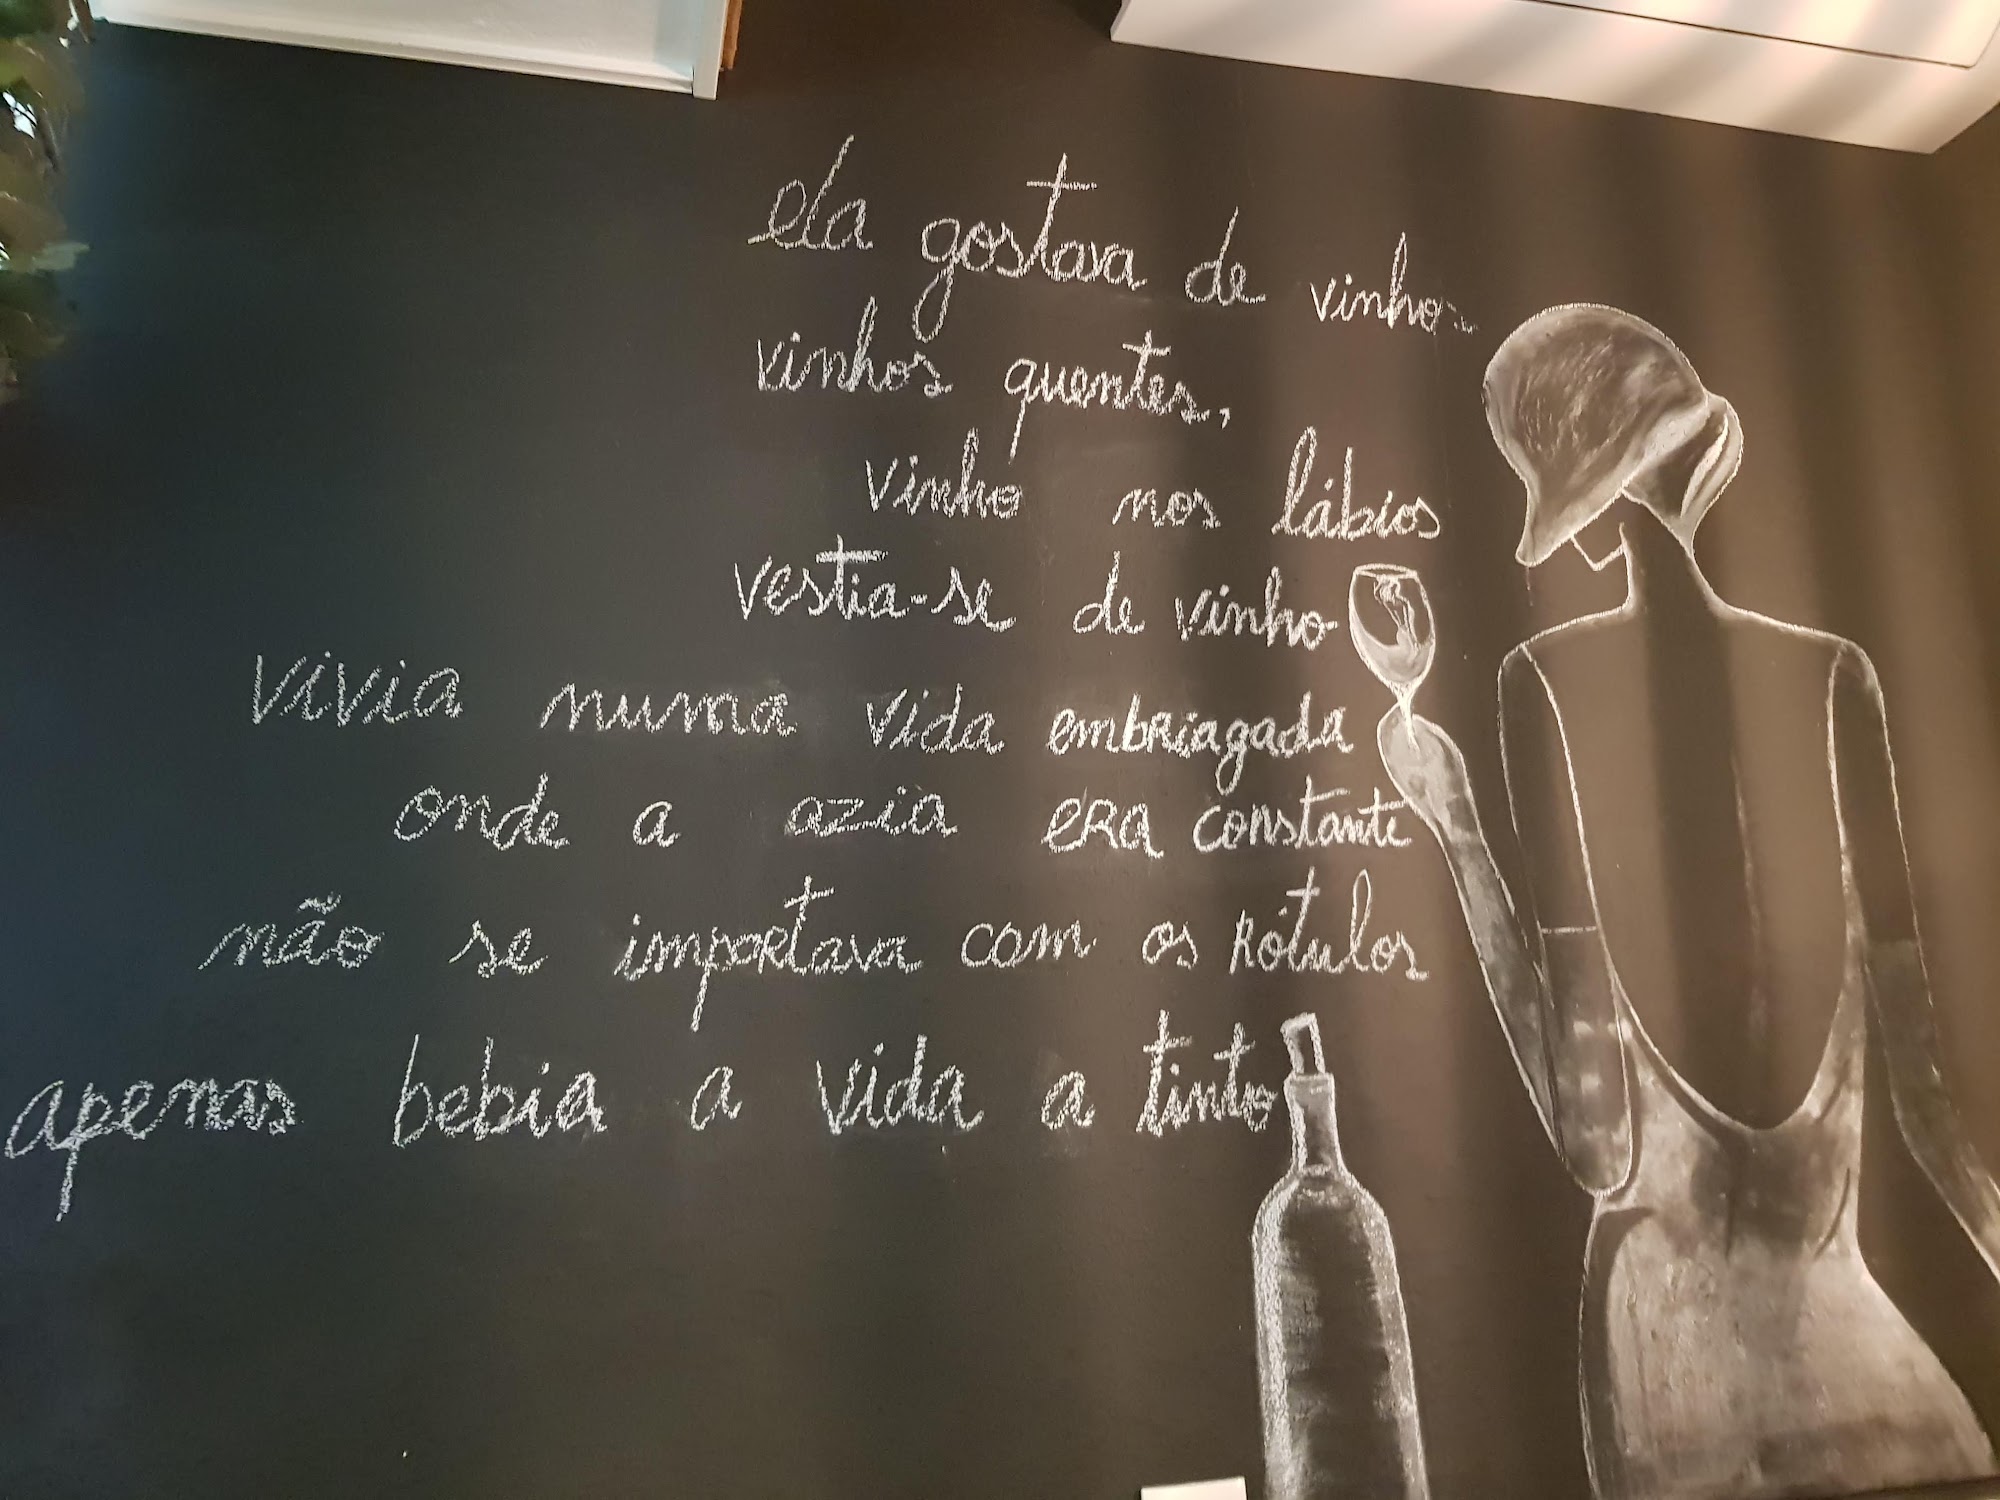 ela gostava de vinhos
vinhos quentes,
vinho nos lábios
vestia-se de vinho
vivia numa vida embriagada
onde a azia era constante
não se importava com os rótulos
apenas bebia a vida a tinto